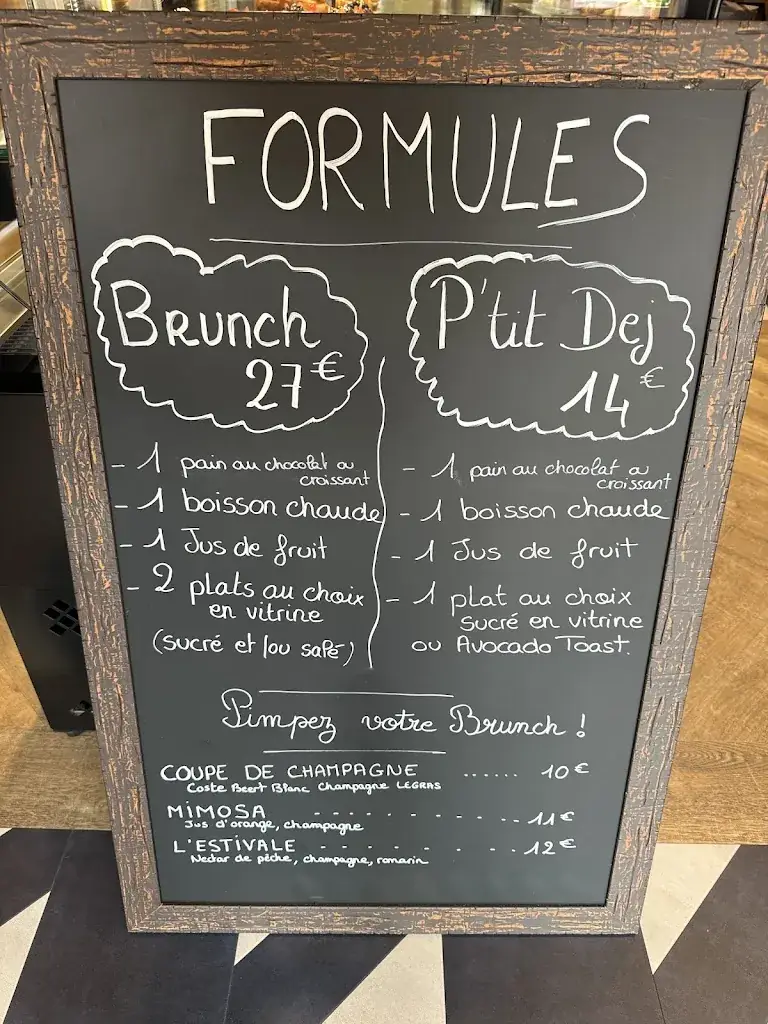 FORMULES
Brunch
27€
- 1 pain au chocolat ou
croissant
- 1 boisson chaude
- 1 Jus de fruit
- 2 plats au choix
en vitrine
(sucré et/ou salé)
P'tit Dej
14€
- 1 pain au chocolat ou
croissant
- 1 boisson chaude
- 1 Jus de fruit
- 1 plat au choix
sucré en vitrine
ou Avocado Toast.
Pimpez votre Brunch !
COUPE DE CHAMPAGNE ...... 10€
Coste Beert Blanc Champagne LEGRAS
MIMOSA - - - - - - - - - 11€
Jus d'orange, champagne
L'ESTIVALE - - - - - - - - 12€
Nectar de pêche, champagne, romarin